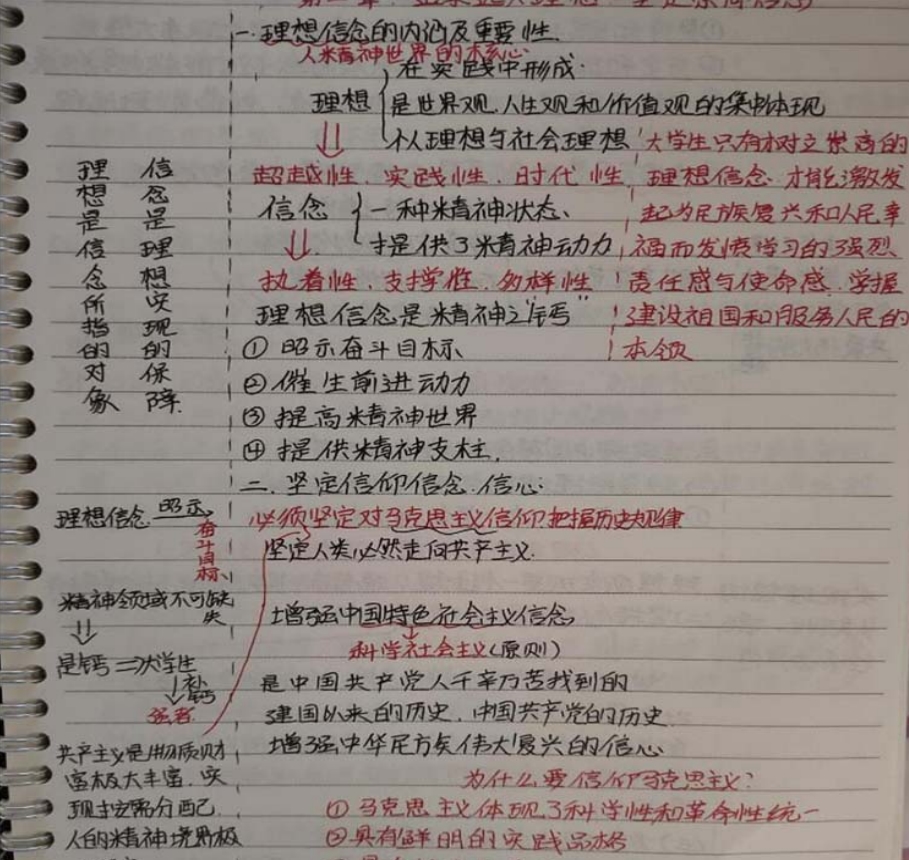 一.理想信念的内涵及重要性.
人精神世界的核心
在实践中形成.
理想
是世界观.人生观和价值观的集中体现
个人理想与社会理想
超越性.实践性.时代性
信念
一种精神状态、
提供了精神动力
执着性.支撑性.多样性
理想信念是精神之"钙"
①昭示奋斗目标、
②催生前进动力
③提高精神世界
④提供精神支柱.
大学生只有树立崇高的
理想信念.才能激发
起为民族复兴和人民幸
福而发愤学习的强烈
责任感与使命感.掌握
建设祖国和服务人民的
本领
理想是信念所指的对象
信念是理想实现的保障.
二.坚定信仰信念.信心:
必须坚定对马克思主义信仰把握历史规律
坚定人类必然走向共产主义.
增强中国特色社会主义信念
科学社会主义(原则)
是中国共产党人千辛万苦找到的
建国以来的历史.中国共产党的历史
增强中华民族伟大复兴的信心
为什么要信仰马克思主义?
①马克思主义体现了科学性和革命性统一
②具有鲜明的实践品格
理想信念
昭示
奋斗目标
精神领域不可缺
失
是钙
大学生
补钙
强者
共产主义是物质财
富极大丰富.实
现按需分配.
人的精神境界极